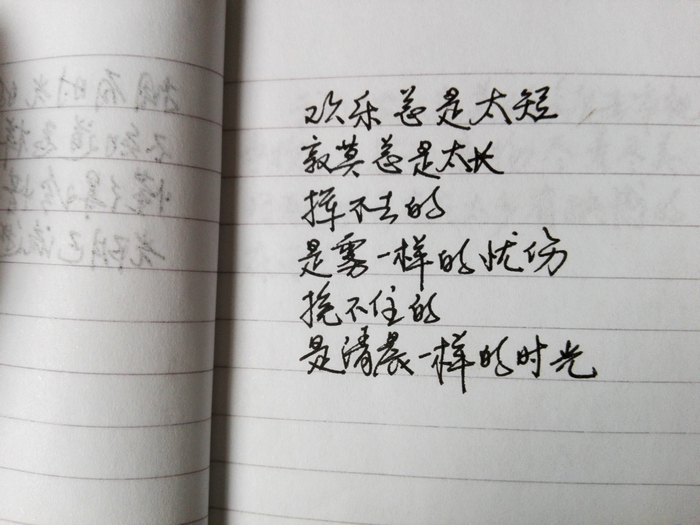 欢乐总是太短
寂寞总是太长
挥不去的
是雾一样的忧伤
挽不住的
是清晨一样的时光